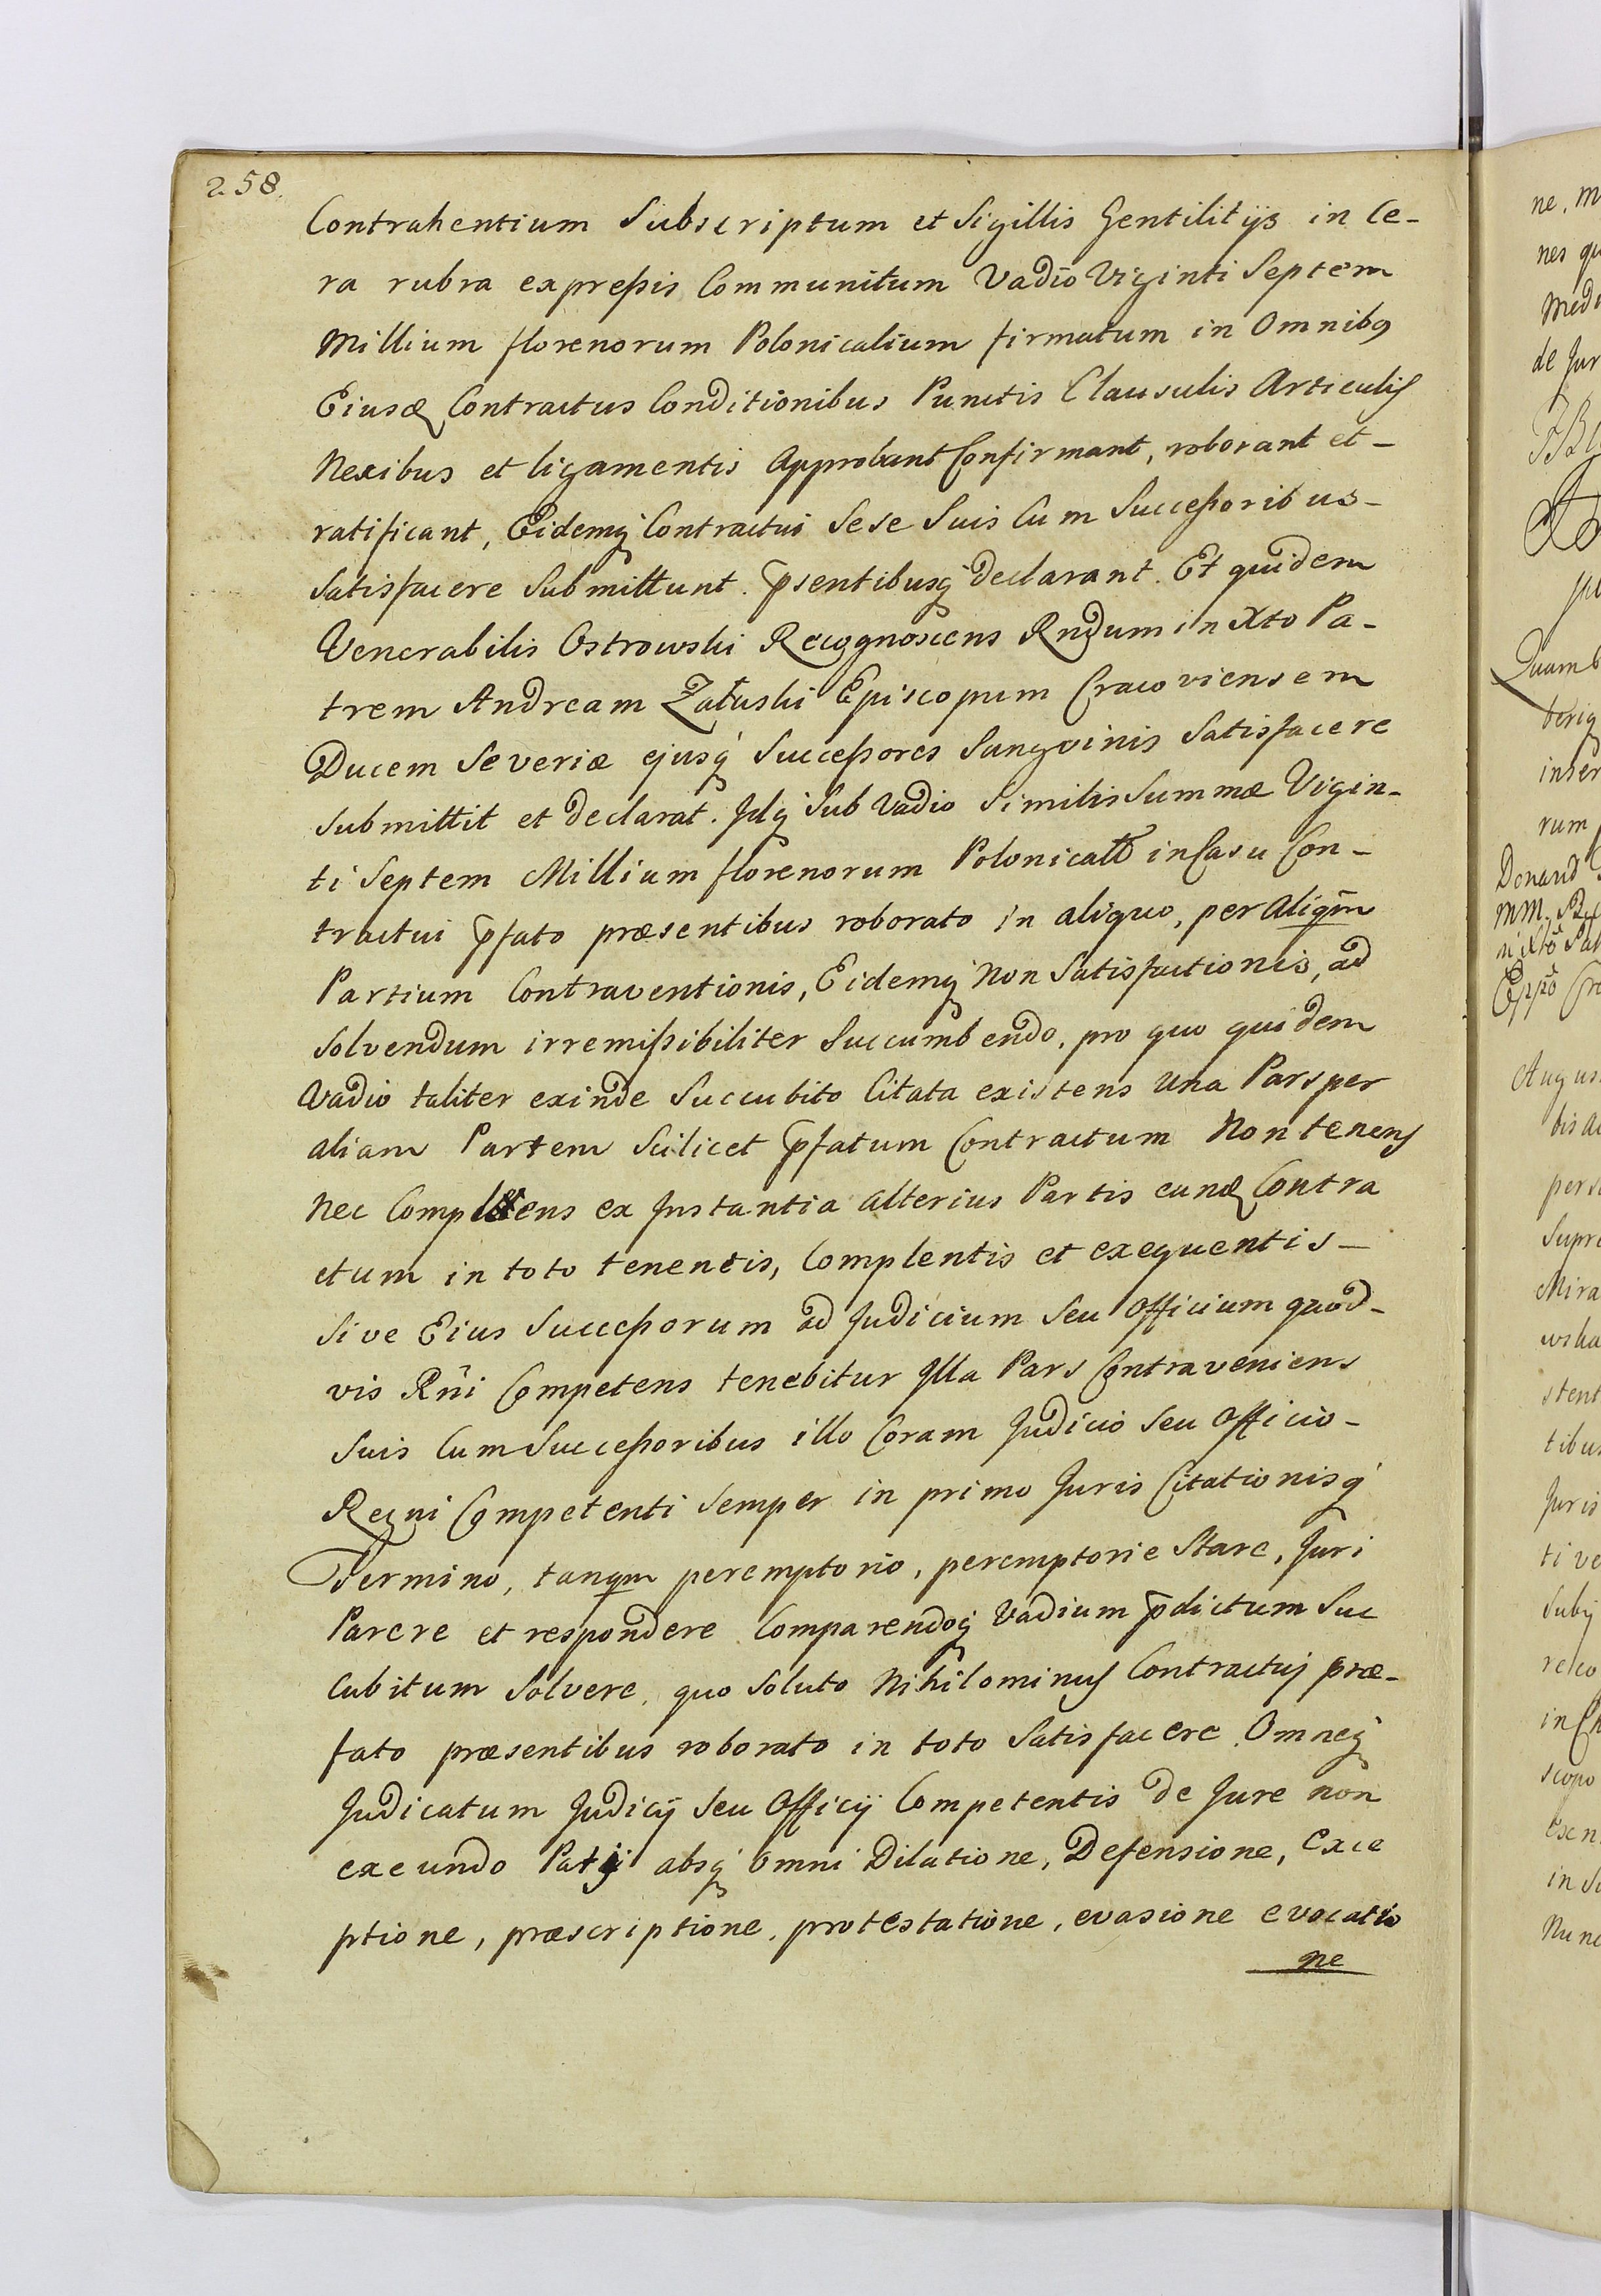 258.
Contrahentium Subscriptum et Sigillis Gentilitijs in Ce-
ra rubra expreßis Communitum Vadio Viginti Septem
Millium florenorum Polonicalium firmatum in Omnibꝰ
Eiusdꝫ Contractus Conditionibus Punctis Clausulis Articulis
Nexibus et ligamentis Approbant Confirmant, roborant et -
ratificant, Eidemqꝫ Contractui Sese Suis Cum Succeßoribus -
Satisfacere Submittunt. p̄sentibusqꝫ declarant. Et quidem
Venerabilis Ostrowski Recognoscens Rndum in Xto Pa-
trem Andream Załuski Episcopum Cracoviensem
Ducem Severiæ ejusqꝫ Succeßores Sangvinis Satisfacere
submittit et declarat. Idqꝫ Sub Vadio Similis Summæ Vigin-
ti Septem Millium florenorum Polonicaliũ in Casu Con-
tractui p̄fato præsentibus roborato in aliquo, per Aliqm̄
Partium Contraventionis, Eidemqꝫ Non Satisfactionis, ad
solvendum irremißibiliter Succumbendo, pro quo quidem
Vadio taliter exinde Succubito Citata existens Una Pars per
aliam Partem Scilicet p̄fatum Contractum Non tenens
nec Complens ex Instantia alterius Partis eundꝫ Contra
ctum in toto tenentis, Complentis et exequentis -
Sive Eius Succeßorum ad Judicium Seu Officium quod-
vis Rñi Competens tenebitur Illa Pars Contraveniens
Suis Cum Succeßoribus illo Coram Judicio Seu Officio -
Regni Competenti Semper in primo Juris Citationisqꝫ
Termino, tanqm peremptorio, peremptorie Stare, Juri
Parere et respondere Comparendoqꝫ Vadium p̄dictum Suc
Cubitum Solvere, quo Soluto Nihilominus Contractui præ-
fato præsentibus roborato in toto Satisfacere. Omneqꝫ
Judicatum Judicij Seu Officij Competentis de Jure non
exeundo Pati absqꝫ Omni Dilatione, Defensione, Exce
ptione, præscriptione, protestatione, evasione evocatio
ne